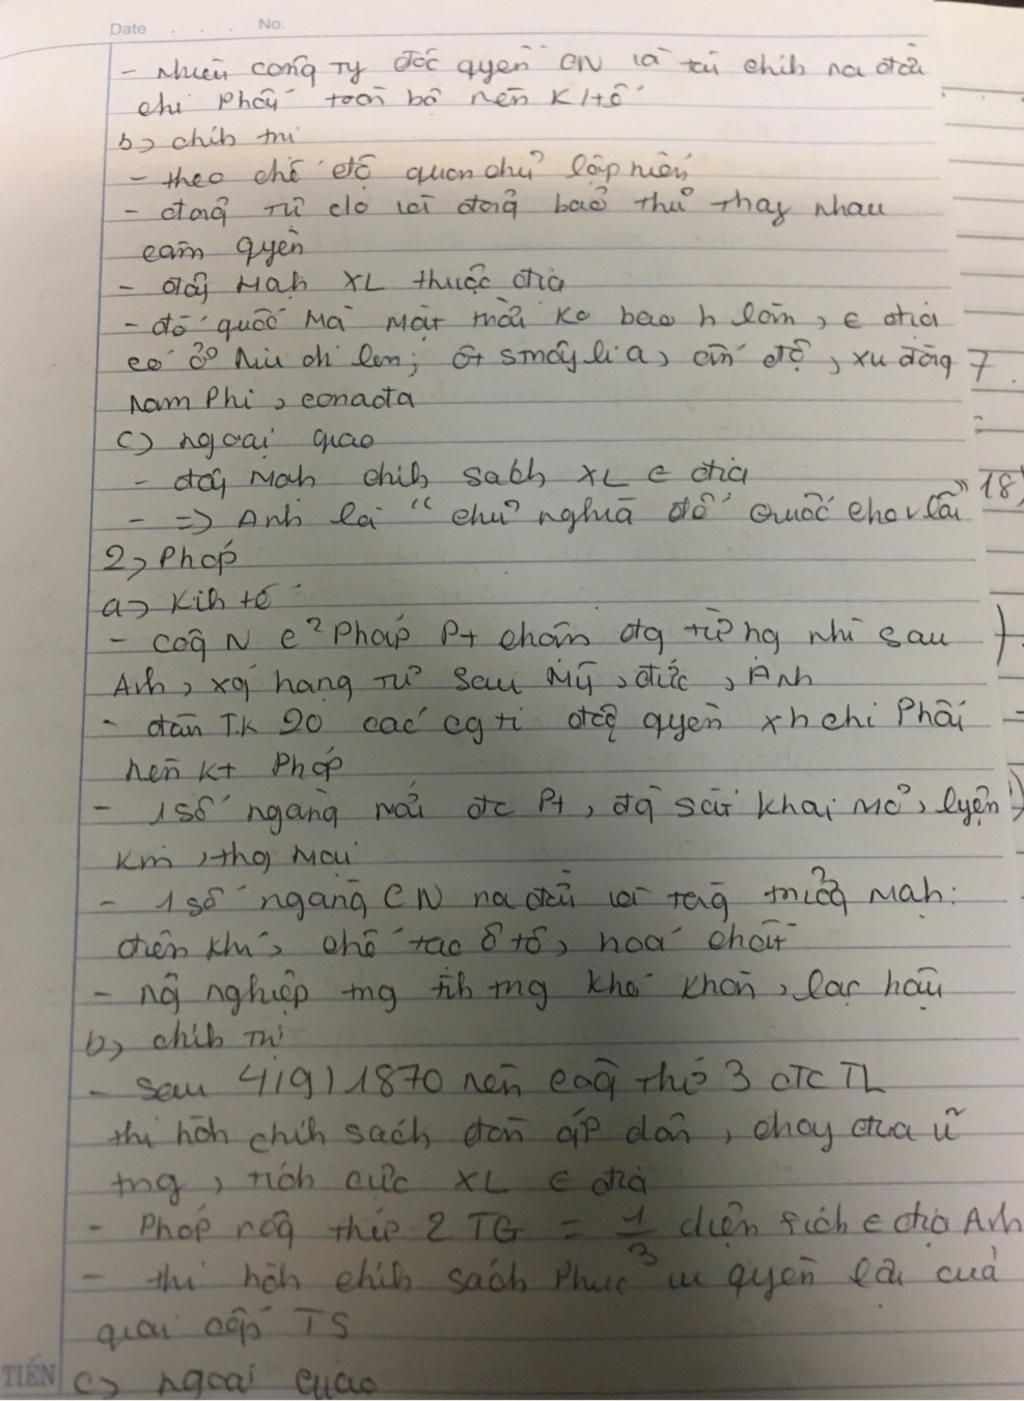 Date . . . No.
- nhiều công ty độc quyền CN và tài chíh ra đời
chi phối toàn bộ nền K tế
b) chíh trị
- theo chế độ quân chủ lập hiến
- đảng tự do và đảng bảo thủ thay nhau
cầm quyền
- đẩy mạh XL thuộc địa
- đế quốc mà mặt trời ko bao h lặn, € địa
có ở Niu di len; ốt smây li a, ấn độ, xu đăng
nam Phi, canađa
c) ngoại giao
- đẩy mạh chíh sách XL € địa
- => Anh là " chủ nghĩa đế quốc "
2) Pháp
a) Kih tế
- côg N Pháp Pt chậm đg từ hg nhì sau
Anh, xg hàng tư sau Mỹ, đức, Anh
- đầu TK 20 các cg ti độc quyền xh chi Phối
nền kt Pháp
- 1 số ngàng mới đc Pt, đg sắt khai mỏ, lyện
kim, thg mại
- 1 số ngàng CN ra đời và tăng trưởg mạh:
điện khí, chế tạo ô tô, hoá chất
- nôg nghiệp trog tìh trạg khó khăn, lạc hậu
b) chíh trị
- sau 4/9/1870 nền cộg thứ 3 đc TL
thi hàh chíh sách đàn áp dân, chạy đua ũ
trag, tích cực XL € địa
- Pháp rộg thứ 2 TG = 1/3 diện tích € địa Anh
- thi hàh chíh sách phục vụ quyền lợi của
giai cấp TS
TIẾN c) ngoại giao